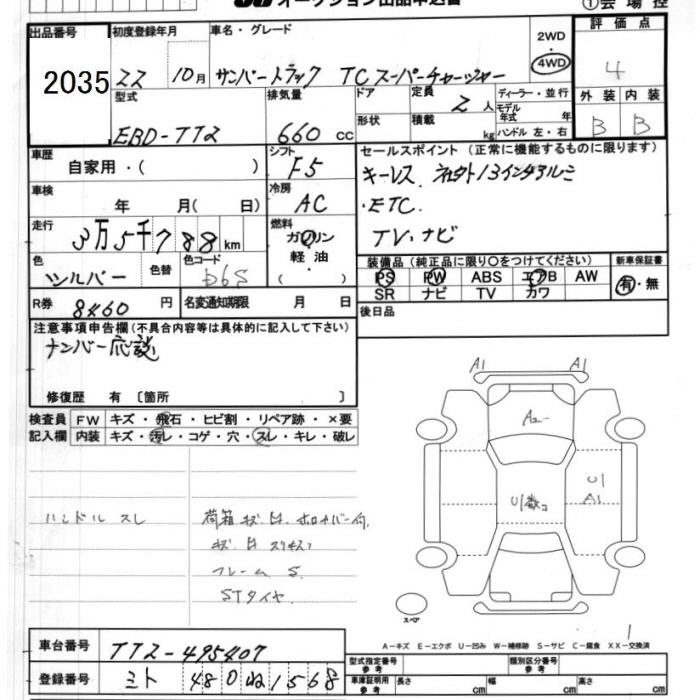 オークション出品申込書 ①会場控
出品番号 2035
初度登録年月 22 10月
車名・グレード サンバートラック TCスーパーチャージャー
2WD 4WD
評価点 4
型式 EBD-TT2
排気量 660 cc
ドア 形状
定員 2人 積載 kg
ディーラー・並行 モデル年式 年 ハンドル 左・右
外装 B 内装 B
車歴 自家用・( )
シフト F5
セールスポイント (正常に機能するものに限ります)
キーレス 社外13インチアルミ
・ETC
TV・ナビ
車検 年 月( 日)
冷房 AC
走行 3万5千788km
燃料 ガソリン 軽油
色 シルバー 色替 色コード D6S
装備品 (純正品に限り○をつけてください) 新車保証書
PS PW ABS エアB AW 有・無
SR ナビ TV カワ
R券 8460円 名変通知期限 月 日
後日品
注意事項申告欄 (不具合内容等は具体的に記入して下さい)
ナンバー応談
修復歴 有 〔箇所 〕
検査員記入欄 FW キズ・飛石・ヒビ割・リペア跡・×要
内装 キズ・汚レ・コゲ・穴・スレ・キレ・破レ
ハンドルスレ
荷箱 キズ 凹 ホロカバー付
キズ 凹 スリキズ
フレームS
STタイヤ
A1 A1
A2
U1 A1
U1数コ
スペア
1
A-キズ E-エクボ U-凹み W-補修跡 S-サビ C-腐食 XX-交換済
車台番号 TT2-495407
型式指定番号 参考 類別区分番号 参考
登録番号 ミト 480ぬ1568
車庫証明用 参考 長さ cm 幅 cm 高さ cm